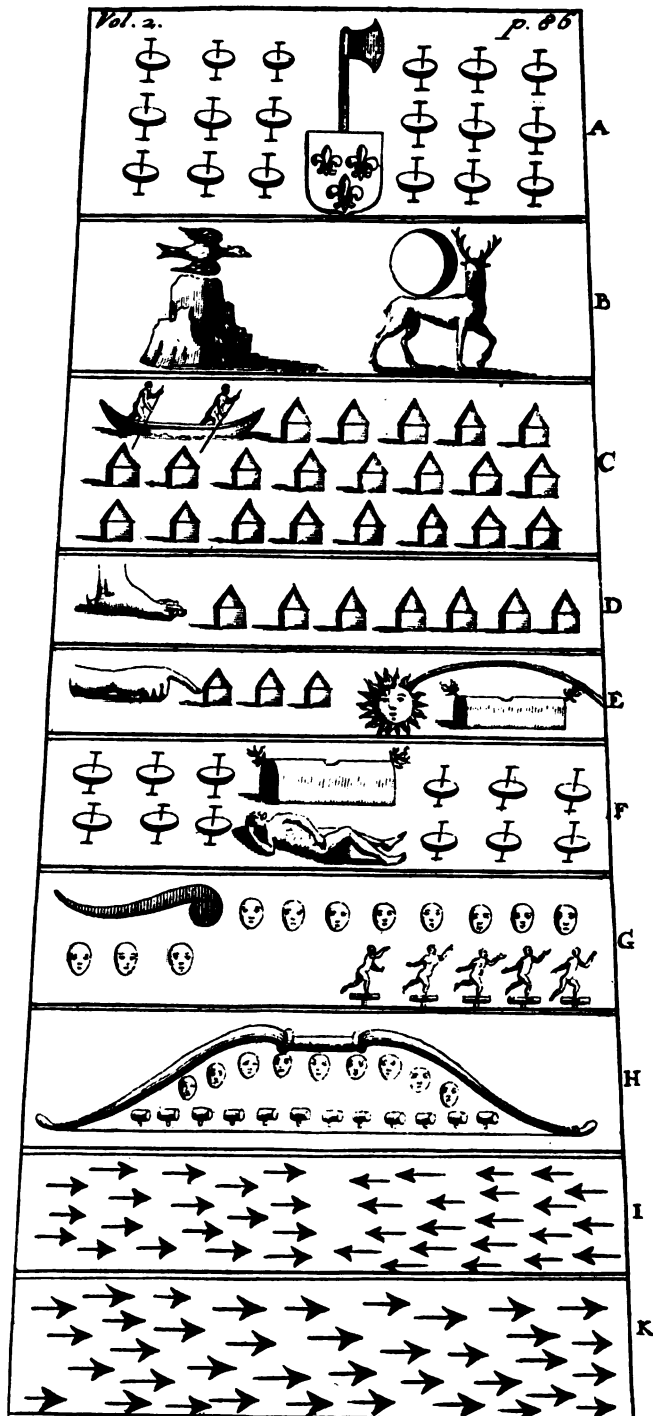 Vol. 2.
p. 86
A
B
C
D
E
F
G
H
I
K